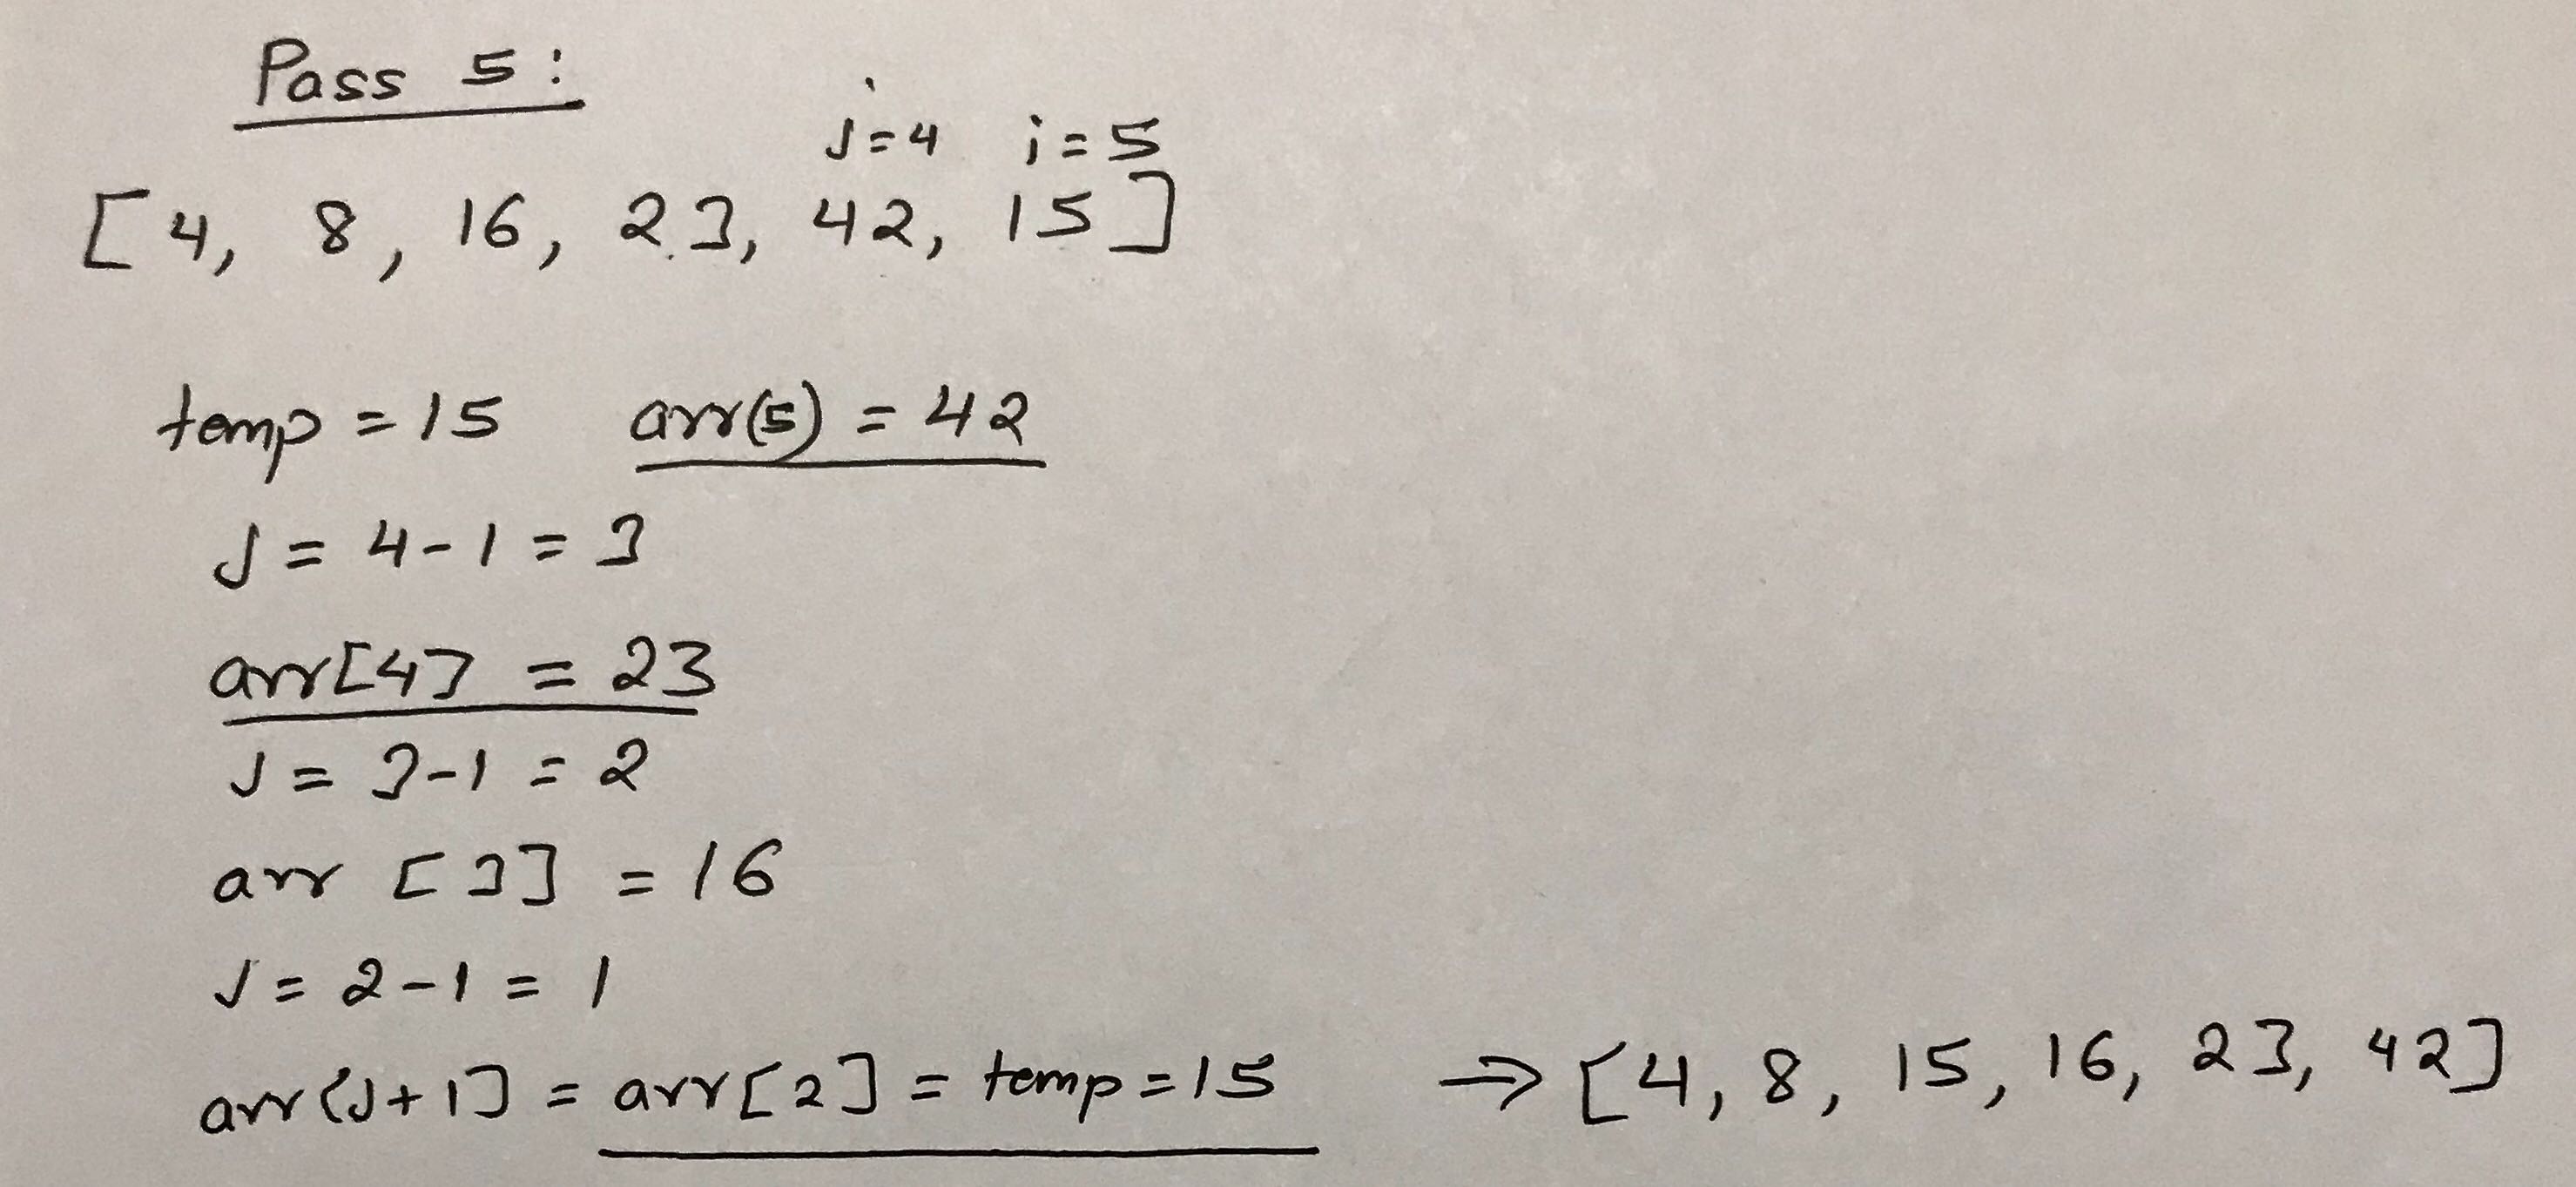 Pass 5:
j=4 i=5
[4, 8, 16, 23, 42, 15]
temp = 15 arr(5) = 42
J = 4-1 = 3
arr[4] = 23
J = 3-1 = 2
arr [3] = 16
J = 2-1 = 1
arr[J+1] = arr[2] = temp=15 → [4, 8, 15, 16, 23, 42]